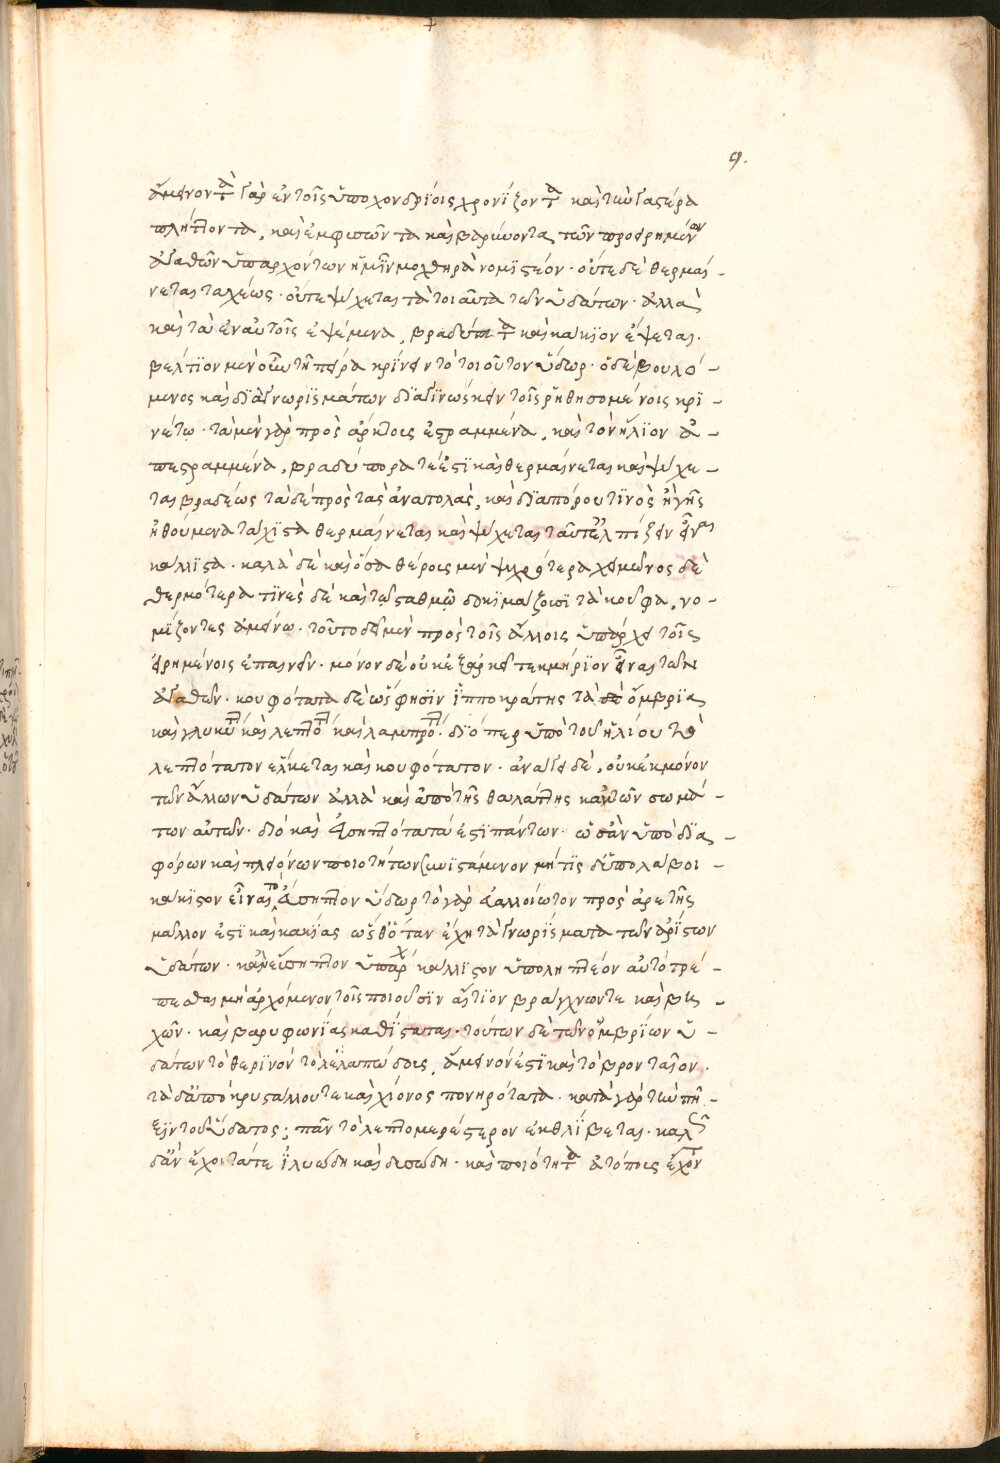 9.
ἄμεινον τὰ γὰρ ἐν τοῖς ὑποχονδρίοις χρονίζοντα καὶ τὴν γαστέρα
πλήττοντα, καὶ ἐμφυσῶντα καὶ βαρύνοντα, τῶν προειρημένων
ἀγαθῶν ὑπαρχόντων ἡμῖν μοχθηρὰ νομιστέον· οὔτε δὲ θερμαί-
νεται ταχέως· οὔτε ψύχεται τὰ τοιαῦτα τῶν ὑδάτων· ἀλλὰ
καὶ τὰ ἐν αὐτοῖς ἑψόμενα, βραδύτατα καὶ κάκιον ἕψεται·
βέλτιον μὲν οὖν τῇ πείρᾳ κρίνειν τὸ τοιοῦτον ὕδωρ· ὁ δὲ βουλό-
μενος καὶ διὰ γνωρισμάτων διαγινώσκειν τοῖς ῥηθησομένοις κρι-
νέτω· τὰ μὲν γὰρ πρὸς ἄρκτοις ἐστραμμένα, καὶ τὸν ἥλιον ἀ-
πεστραμμένα, βραδύπορα τέ ἐστι καὶ θερμαίνεται καὶ ψύχε-
ται βραδέως τὰ δὲ πρὸς τὰς ἀνατολὰς, καὶ διὰ πόρου τινὸς ἢ γῆς
ἠθούμενα τάχιστα θερμαίνεται καὶ ψύχεται ταῦτ' ἐλπίζειν εἶναι
κάλλιστα· καλὰ δὲ καὶ ὅσα θέρους μὲν ψυχρότερα χειμῶνος δὲ
θερμότερα τινὲς δὲ καὶ τῷ σταθμῷ δοκιμάζουσι τὰ κοῦφα, νο-
μίζοντες ἀμείνω· τοῦτο δεῖ μὲν πρὸς τοῖς ἄλλοις ὑπάρχει τοῖς
εἰρημένοις ἐπαινεῖν· μόνον δὲ οὐκ ἐξαρκεῖ τεκμήριον εἶναι τῶν
ἀγαθῶν· κουφότατα δὲ ὥς φησιν ἱπποκράτης τὰ ὄμβρια
καὶ γλυκύτατα καὶ λεπτότατα καὶ λαμπρότατα· διόπερ ὑπὸ τοῦ ἡλίου τὸ
λεπτότατον ἕλκεται καὶ κουφότατον· ἀνάγει δὲ, οὐκ ἐκ μόνον
τῶν ἄλλων ὑδάτων ἀλλὰ καὶ ἀπὸ τῆς θαλάττης κἀκ τῶν σωμά-
των αὐτῶν· διὸ καὶ εὐσηπτότατά ἐστι πάντων· ὡς ἂν ὑπὸ δια
φόρων καὶ πλειόνων ποιοτήτων συνιστάμενον μή τις δ' ὑπολάβοι
κάκιστον εἶναι τὸ εὔσηπτον ὕδωρ τὸ γὰρ εὐαλλοίωτον πρὸς ἀρετῆς
μᾶλλον ἐστὶ καὶ κακίας ὥσθ' ὅταν ἔχῃ τὰ γνωρίσματα τῶν ἀρίστων
ὑδάτων· κἂν εὔσηπτον ὑπάρχῃ κάλλιστον ὑποληπτέον αὐτὸ τρέ-
πεσθαι μὴ ἀρχόμενον τοῖς πιοῦσιν αἴτιον βράγχων τε καὶ βη-
χῶν· καὶ βαρυφωνίας καθίσταται· τούτων δὲ τῶν ὀμβρίων ὑ-
δάτων τὸ θερινὸν τὸ λελαπῶδες, ἄμεινόν ἐστι καὶ τὸ βρονταῖον·
τὰ δ' ἀπὸ κρυστάλλου τε καὶ χιόνος πονηρότατα· κατὰ γὰρ τὴν πῆ-
ξιν τοῦ ὕδατος; πᾶν τὸ λεπτομερέστερον ἐκθλίβεται· καλ
δ' ἂν ἔχοι τά τε ἰλυώδη καὶ δυσώδη· καὶ ποιότητα ἄτοπος ἔχον